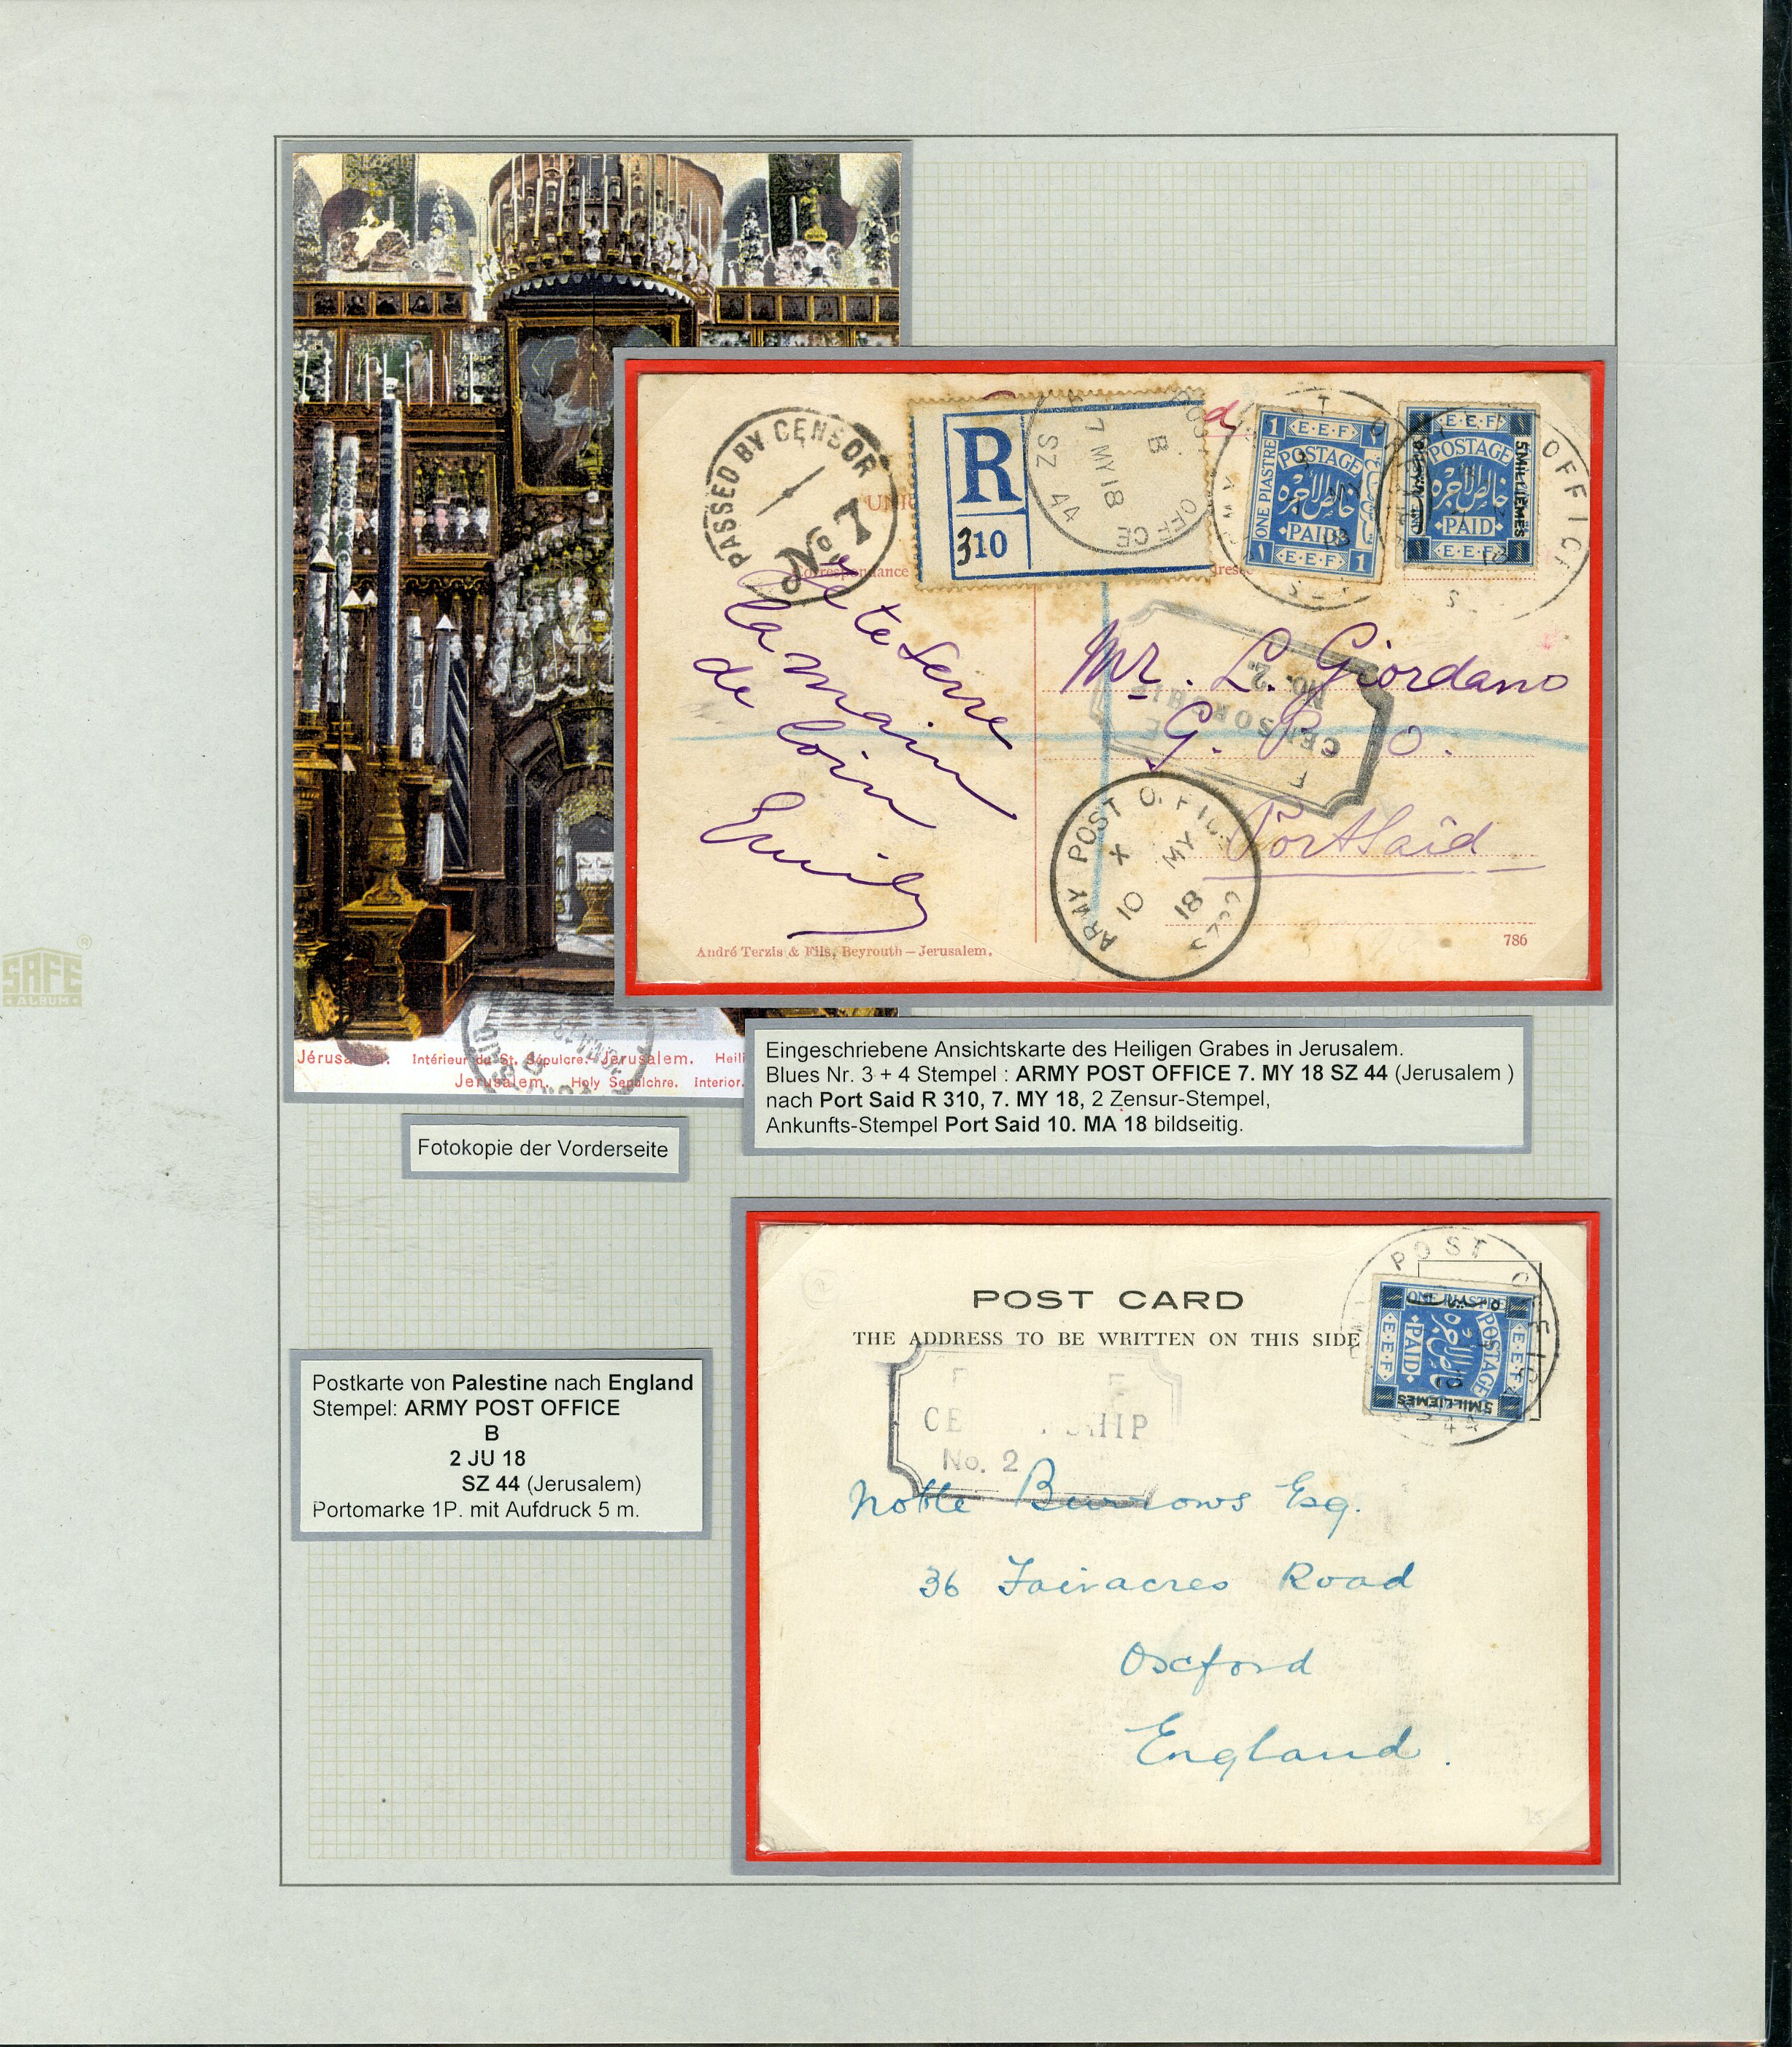 PASSED BY CENSOR
No. 7
R
310
POST OFFICE
B
7 MY 18
SZ 44
E.E.F
POSTAGE
خالص الاجره
PAID
E.E.F
ONE PIASTRE
1 1
1
E.E.F
POSTAGE
خالص الاجره
PAID
E.E.F
5 MILLIEMES
OFFICE
Correspondance
Je te serre
la main
de loin
Emily
Mr. L. Giordano
G. P. O.
Port Said
CENSORSHIP
No. 2.
ARMY POST OFFICE
X
10 MY 18
André Terzis & Fils, Beyrouth – Jerusalem.
786
SAFE
ALBUM
Jérusalem. Intérieur du St. Sépulcre. Jerusalem. Heil
Jerusalem. Holy Sepulchre. Interior.
Eingeschriebene Ansichtskarte des Heiligen Grabes in Jerusalem.
Blues Nr. 3 + 4 Stempel : ARMY POST OFFICE 7. MY 18 SZ 44 (Jerusalem )
nach Port Said R 310, 7. MY 18, 2 Zensur-Stempel,
Ankunfts-Stempel Port Said 10. MA 18 bildseitig.
Fotokopie der Vorderseite
POST CARD
THE ADDRESS TO BE WRITTEN ON THIS SIDE
POST OFFICE
SZ 44
ONE PIASTRE
E.E.F
POSTAGE
خالص الاجره
PAID
E.E.F
5 MILLIEMES
No. 2
Burrows Esq.
36 Fairacres Road
Oxford
England.
Postkarte von Palestine nach England
Stempel: ARMY POST OFFICE
B
2 JU 18
SZ 44 (Jerusalem)
Portomarke 1P. mit Aufdruck 5 m.